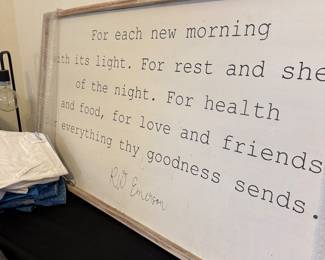 For each new morning
with its light. For rest and she
of the night. For health
and food, for love and friends
everything thy goodness sends.
RW Emerson